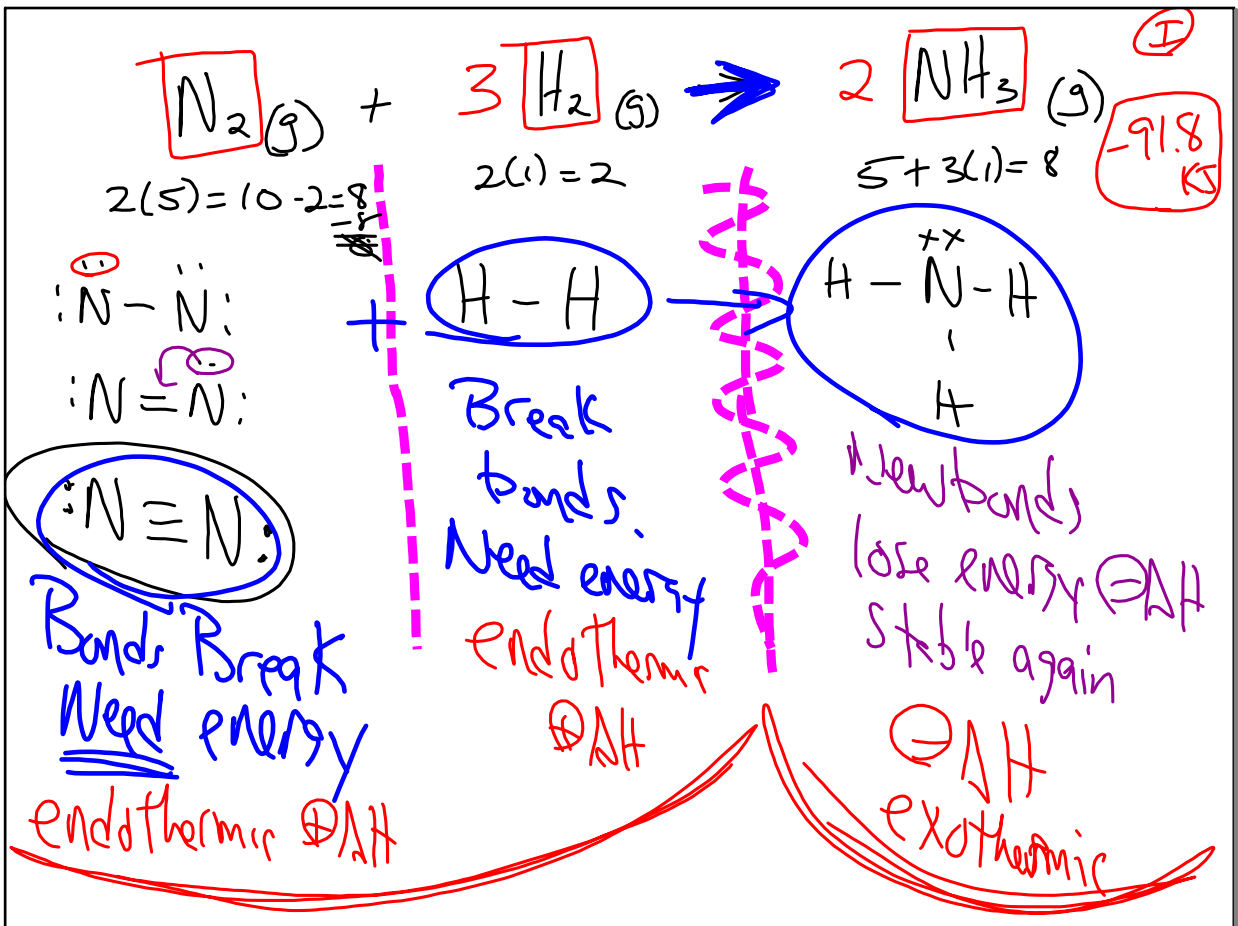 I
N₂(g) + 3 H₂(g) → 2 NH₃(g)
-91.8
KJ
2(5)=10-2=8
2(1)=2
5+3(1)=8
:N̈-N̈:
:N=N̈:
:N≡N:
+
H-H
→
xx
H-N-H
|
H
Bonds Break
Need energy
endothermic ⊕ΔH
Break
bonds.
Need energy
endothermic
⊕ΔH
New bonds
lose energy ⊖ΔH
Stable again
⊖ΔH
exothermic